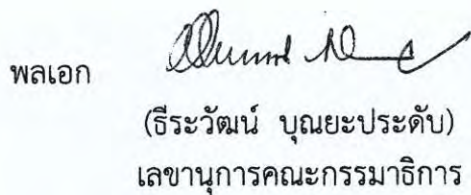 พลเอก
(ธีระวัฒน์ บุณยะประดับ)
เลขานุการคณะกรรมาธิการ